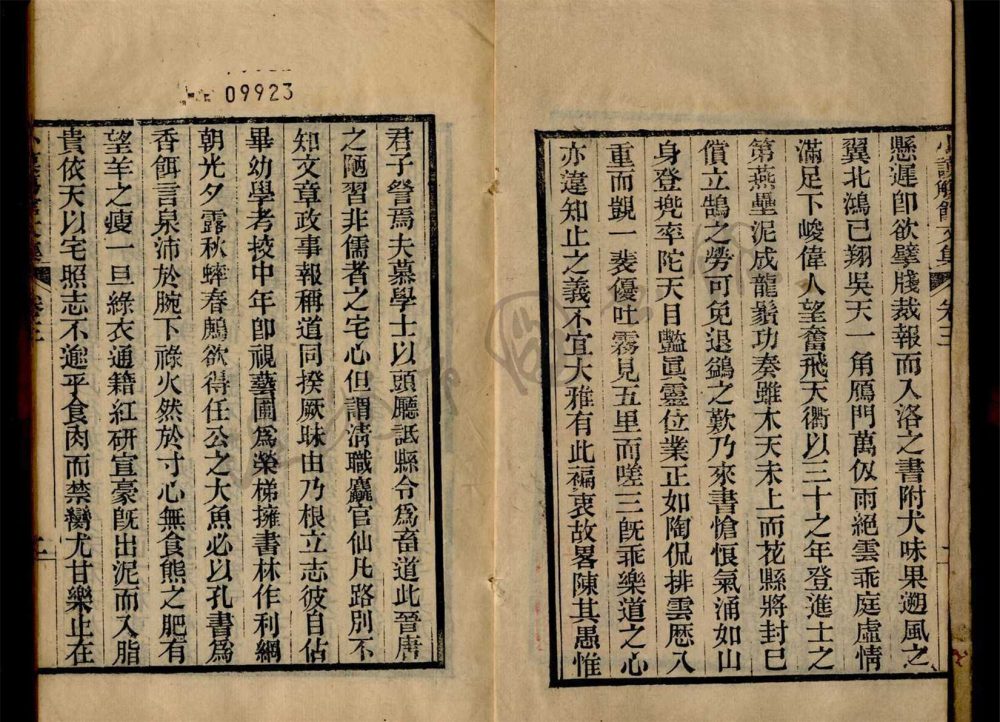 小謨觴館文集 卷三
懸遲卽欲擘牋裁報而入洛之書附犬味果遡風之
翼北鴻已翔吳天一角鴈門萬仭雨絕雲乖庭虛情
滿足下峻偉人望奮飛天衢以三十之年登進士之
第燕壘泥成龍鬚功奏雖木天未上而花縣將封巳
償立鵠之勞可免退鷁之歎乃來書愴悢氣涌如山
身登兠率陀天目豔眞靈位業正如陶侃排雲歴八
重而覬一裴優吐霧見五里而嗟三旣乖樂道之心
亦違知止之義不宜大雅有此褊衷故畧陳其愚惟
09923
君子詧焉夫慕學士以頭廳詆縣令爲畜道此晉唐
之陋習非儒者之宅心但謂淸職麤官仙凡路別不
知文章政事報稱道同揆厥昧由乃根立志彼自佔
畢幼學考挍中年卽視藝圃爲榮梯擁書林作利網
朝光夕露秋蟀春鷅欲得任公之大魚必以孔書爲
香餌言泉沛於腕下祿火然於寸心無食熊之肥有
望羊之痩一旦綠衣通籍紅研宣豪旣出泥而入脂
貴依天以宅照志不遙乎食肉而禁臠尤甘樂止在